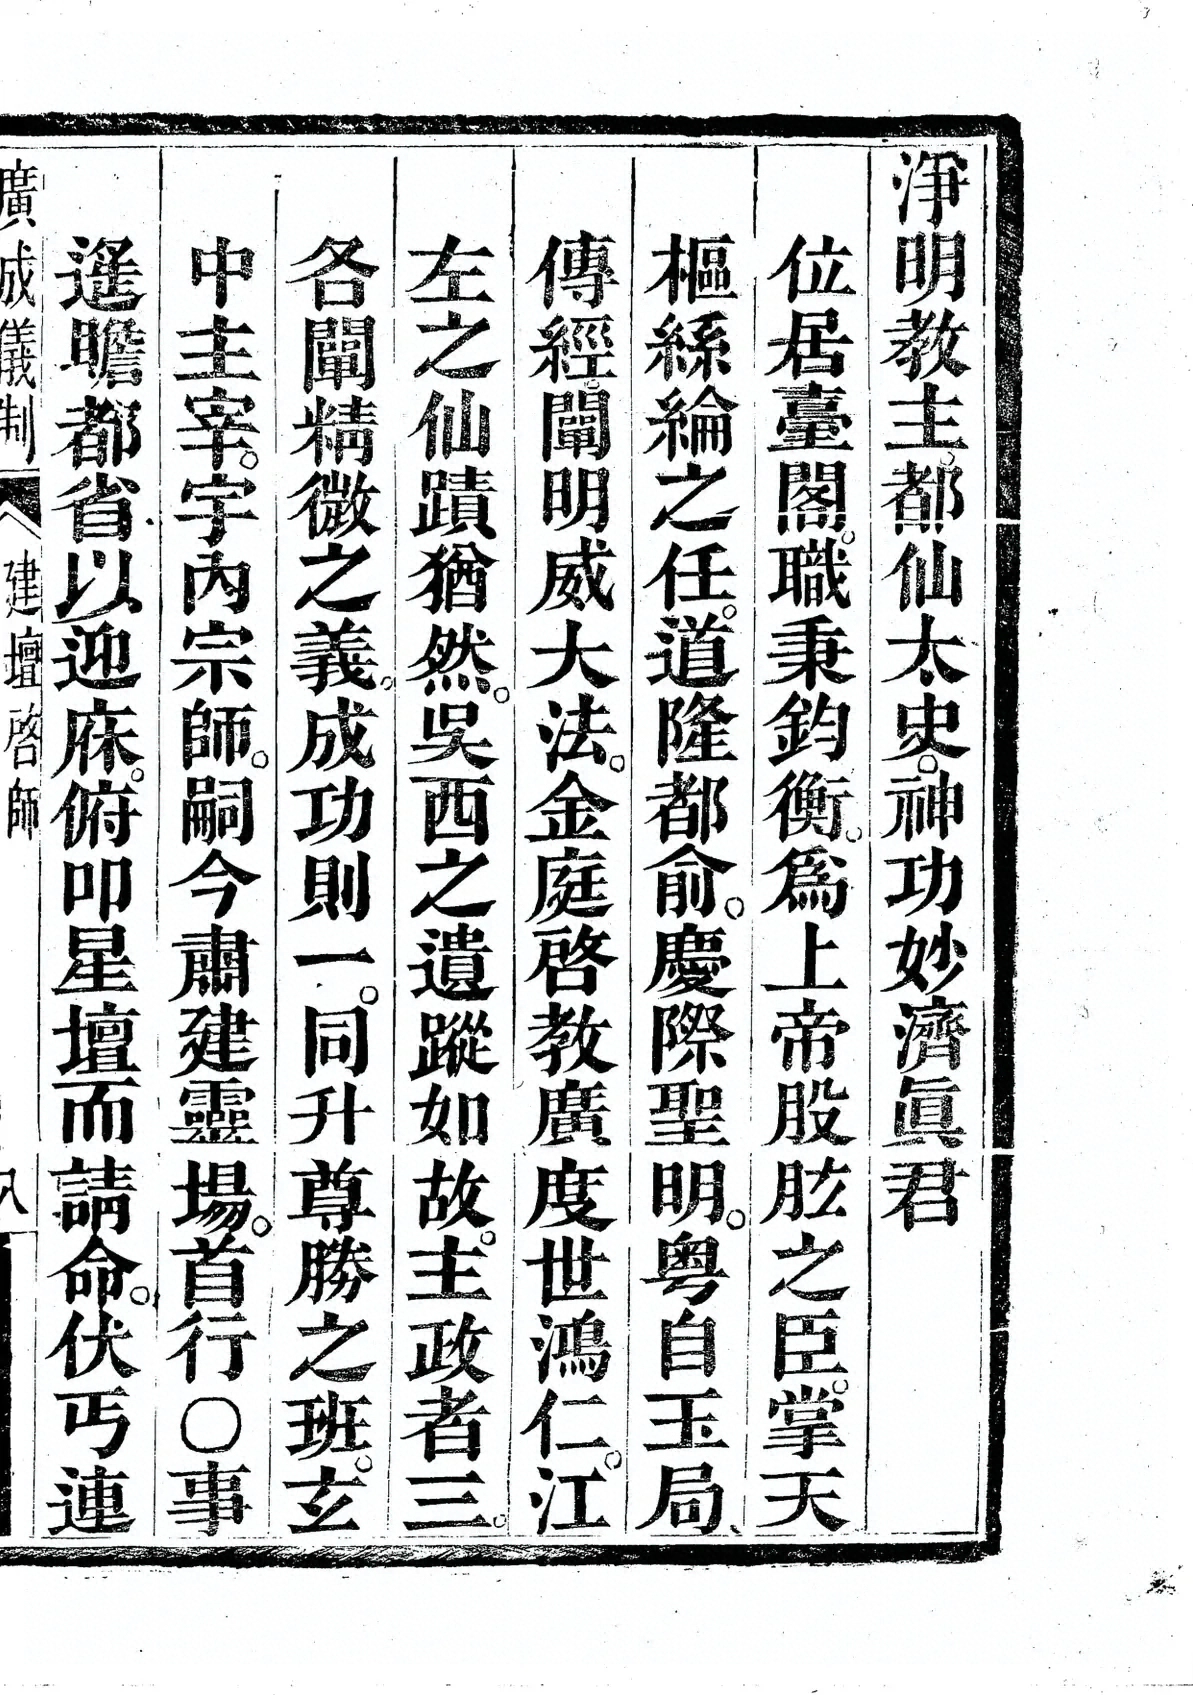 淨明教主。都仙太史。神功妙濟眞君
位居臺閣。職秉鈞衡。爲上帝股肱之臣。掌天
樞絲綸之任。道隆都俞。慶際聖明。粤自玉局
傳經。闡明威大法。金庭啓教廣度世鴻仁。江
左之仙蹟猶然。吳西之遺蹤如故。主政者三。
各闡精微之義。成功則一。同升尊勝之班。玄
中主宰。宇內宗師。嗣今肅建靈場。首行〇事
遙瞻都省以迎庥。俯叩星壇而請命。伏丐連
廣成儀制 建壇啓師 八